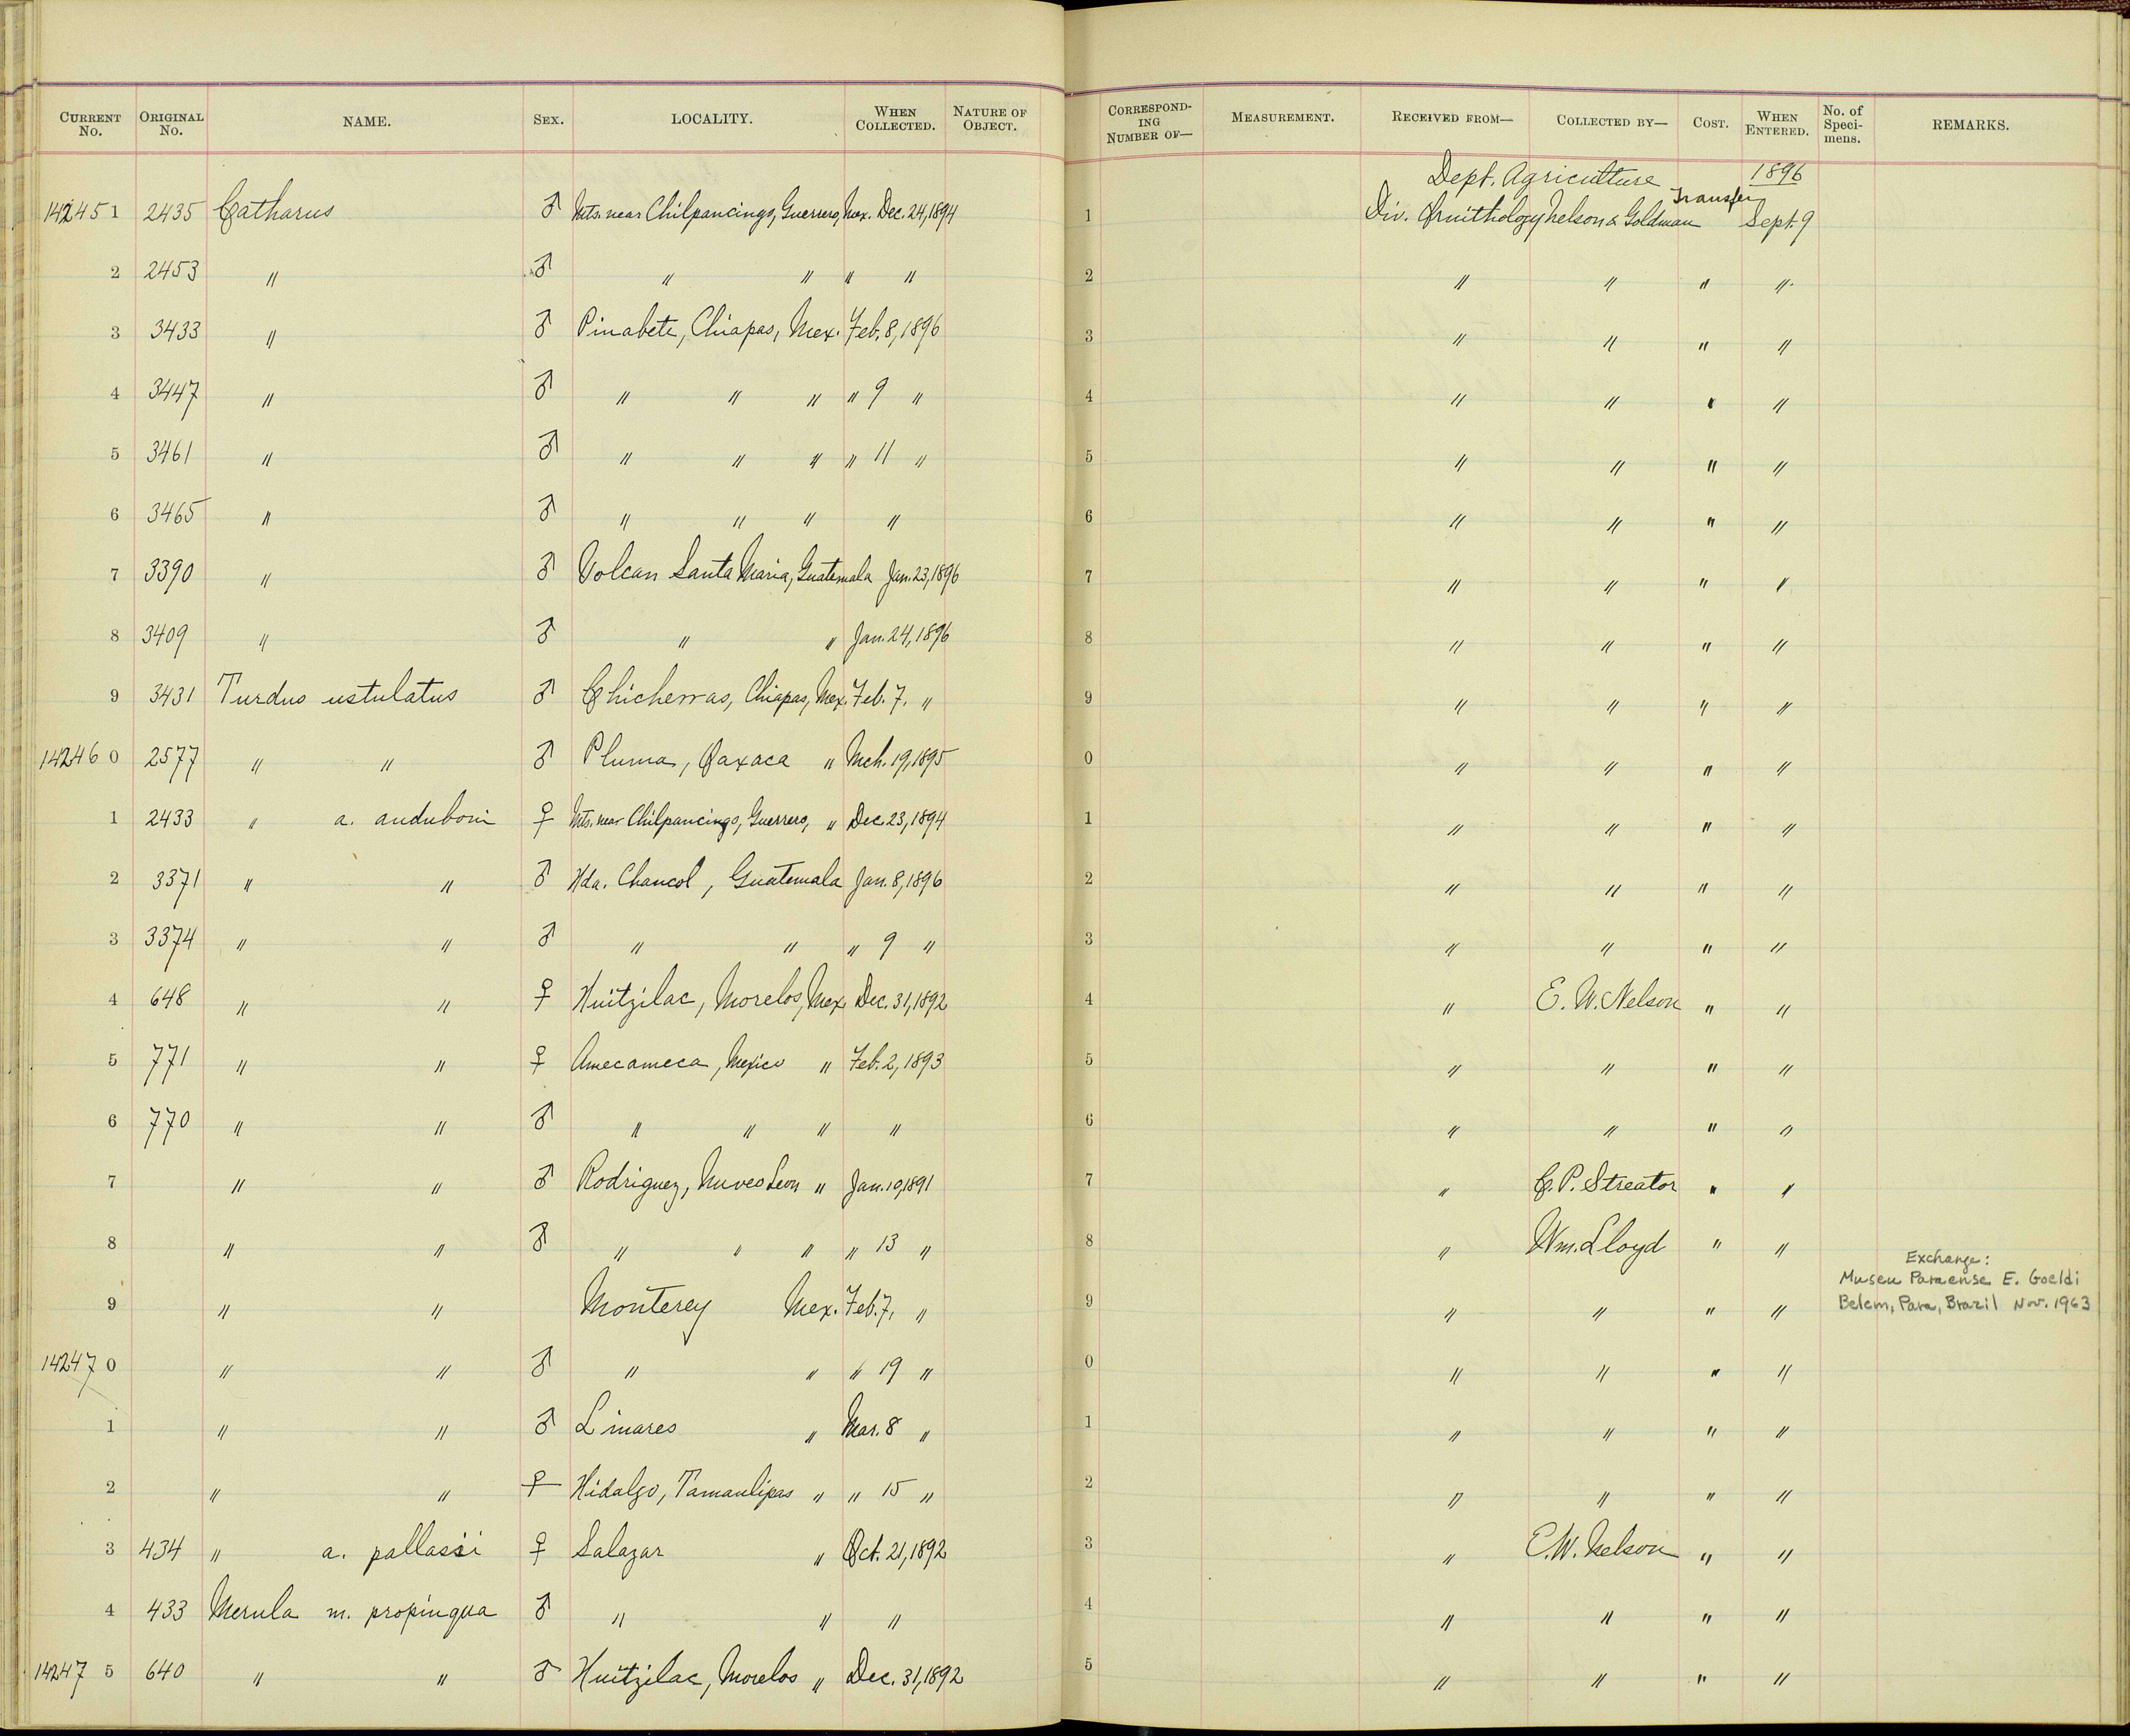 CURRENT No. ORIGINAL No. NAME. SEX. LOCALITY. WHEN COLLECTED. NATURE OF OBJECT. CORRESPONDING NUMBER OF— MEASUREMENT. RECEIVED FROM— COLLECTED BY— COST. WHEN ENTERED. No. of Specimens. REMARKS.
Dept. Agriculture 1896
142451 2435 Catharus ♂ Mts. near Chilpancingo, Guerrero, Mex. Dec. 24, 1894 1 Div. Ornithology Nelson & Goldman Transfer Sept. 9
2 2453 " ♂ " " " " 2 " " " "
3 3433 " ♂ Pinabete, Chiapas, Mex. Feb. 8, 1896 3 " " " "
4 3447 " ♂ " " " " 9 " 4 " " " "
5 3461 " ♂ " " " " 11 " 5 " " " "
6 3465 " ♂ " " " " 6 " " " "
7 3390 " ♂ Volcan Santa Maria, Guatemala Jan. 23, 1896 7 " " " "
8 3409 " ♂ " " Jan. 24, 1896 8 " " " "
9 3431 Turdus ustulatus ♂ Chicharras, Chiapas, Mex. Feb. 7. " 9 " " " "
142460 2577 " " ♂ Pluma, Oaxaca " Mch. 19, 1895 0 " " " "
1 2433 " a. auduboni ♀ Mts. near Chilpancingo, Guerrero, " Dec. 23, 1894 1 " " " "
2 3371 " " ♂ Hda. Chancol, Guatemala Jan. 8, 1896 2 " " " "
3 3374 " " ♂ " " " 9 " 3 " " " "
4 648 " " ♀ Huitzilac, Morelos, Mex. Dec. 31, 1892 4 " E. W. Nelson " "
5 771 " " ♀ Amecameca, Mexico " Feb. 2, 1893 5 " " " "
6 770 " " ♂ " " " " 6 " " " "
7 " " ♂ Rodriguez, Nuevo Leon " Jan. 10, 1891 7 " C. P. Streator " "
8 " " ♂ " " " " 13 " 8 " Wm. Lloyd " "
9 " " Monterey Mex. Feb. 7, " 9 " " " " Exchange:
Museu Paraense E. Goeldi
Belem, Para, Brazil Nov. 1963
142470 " " ♂ " " " 19 " 0 " " " "
1 " " ♂ Linares " Mar. 8 " 1 " " " "
2 " " ♀ Hidalgo, Tamaulipas " " 15 " 2 " " " "
3 434 " a. pallasii ♀ Salazar " Oct. 21, 1892 3 " E. W. Nelson " "
4 433 Merula m. propinqua ♂ " " " 4 " " " "
142475 640 " " ♂ Huitzilac, Morelos " Dec. 31, 1892 5 " " " "